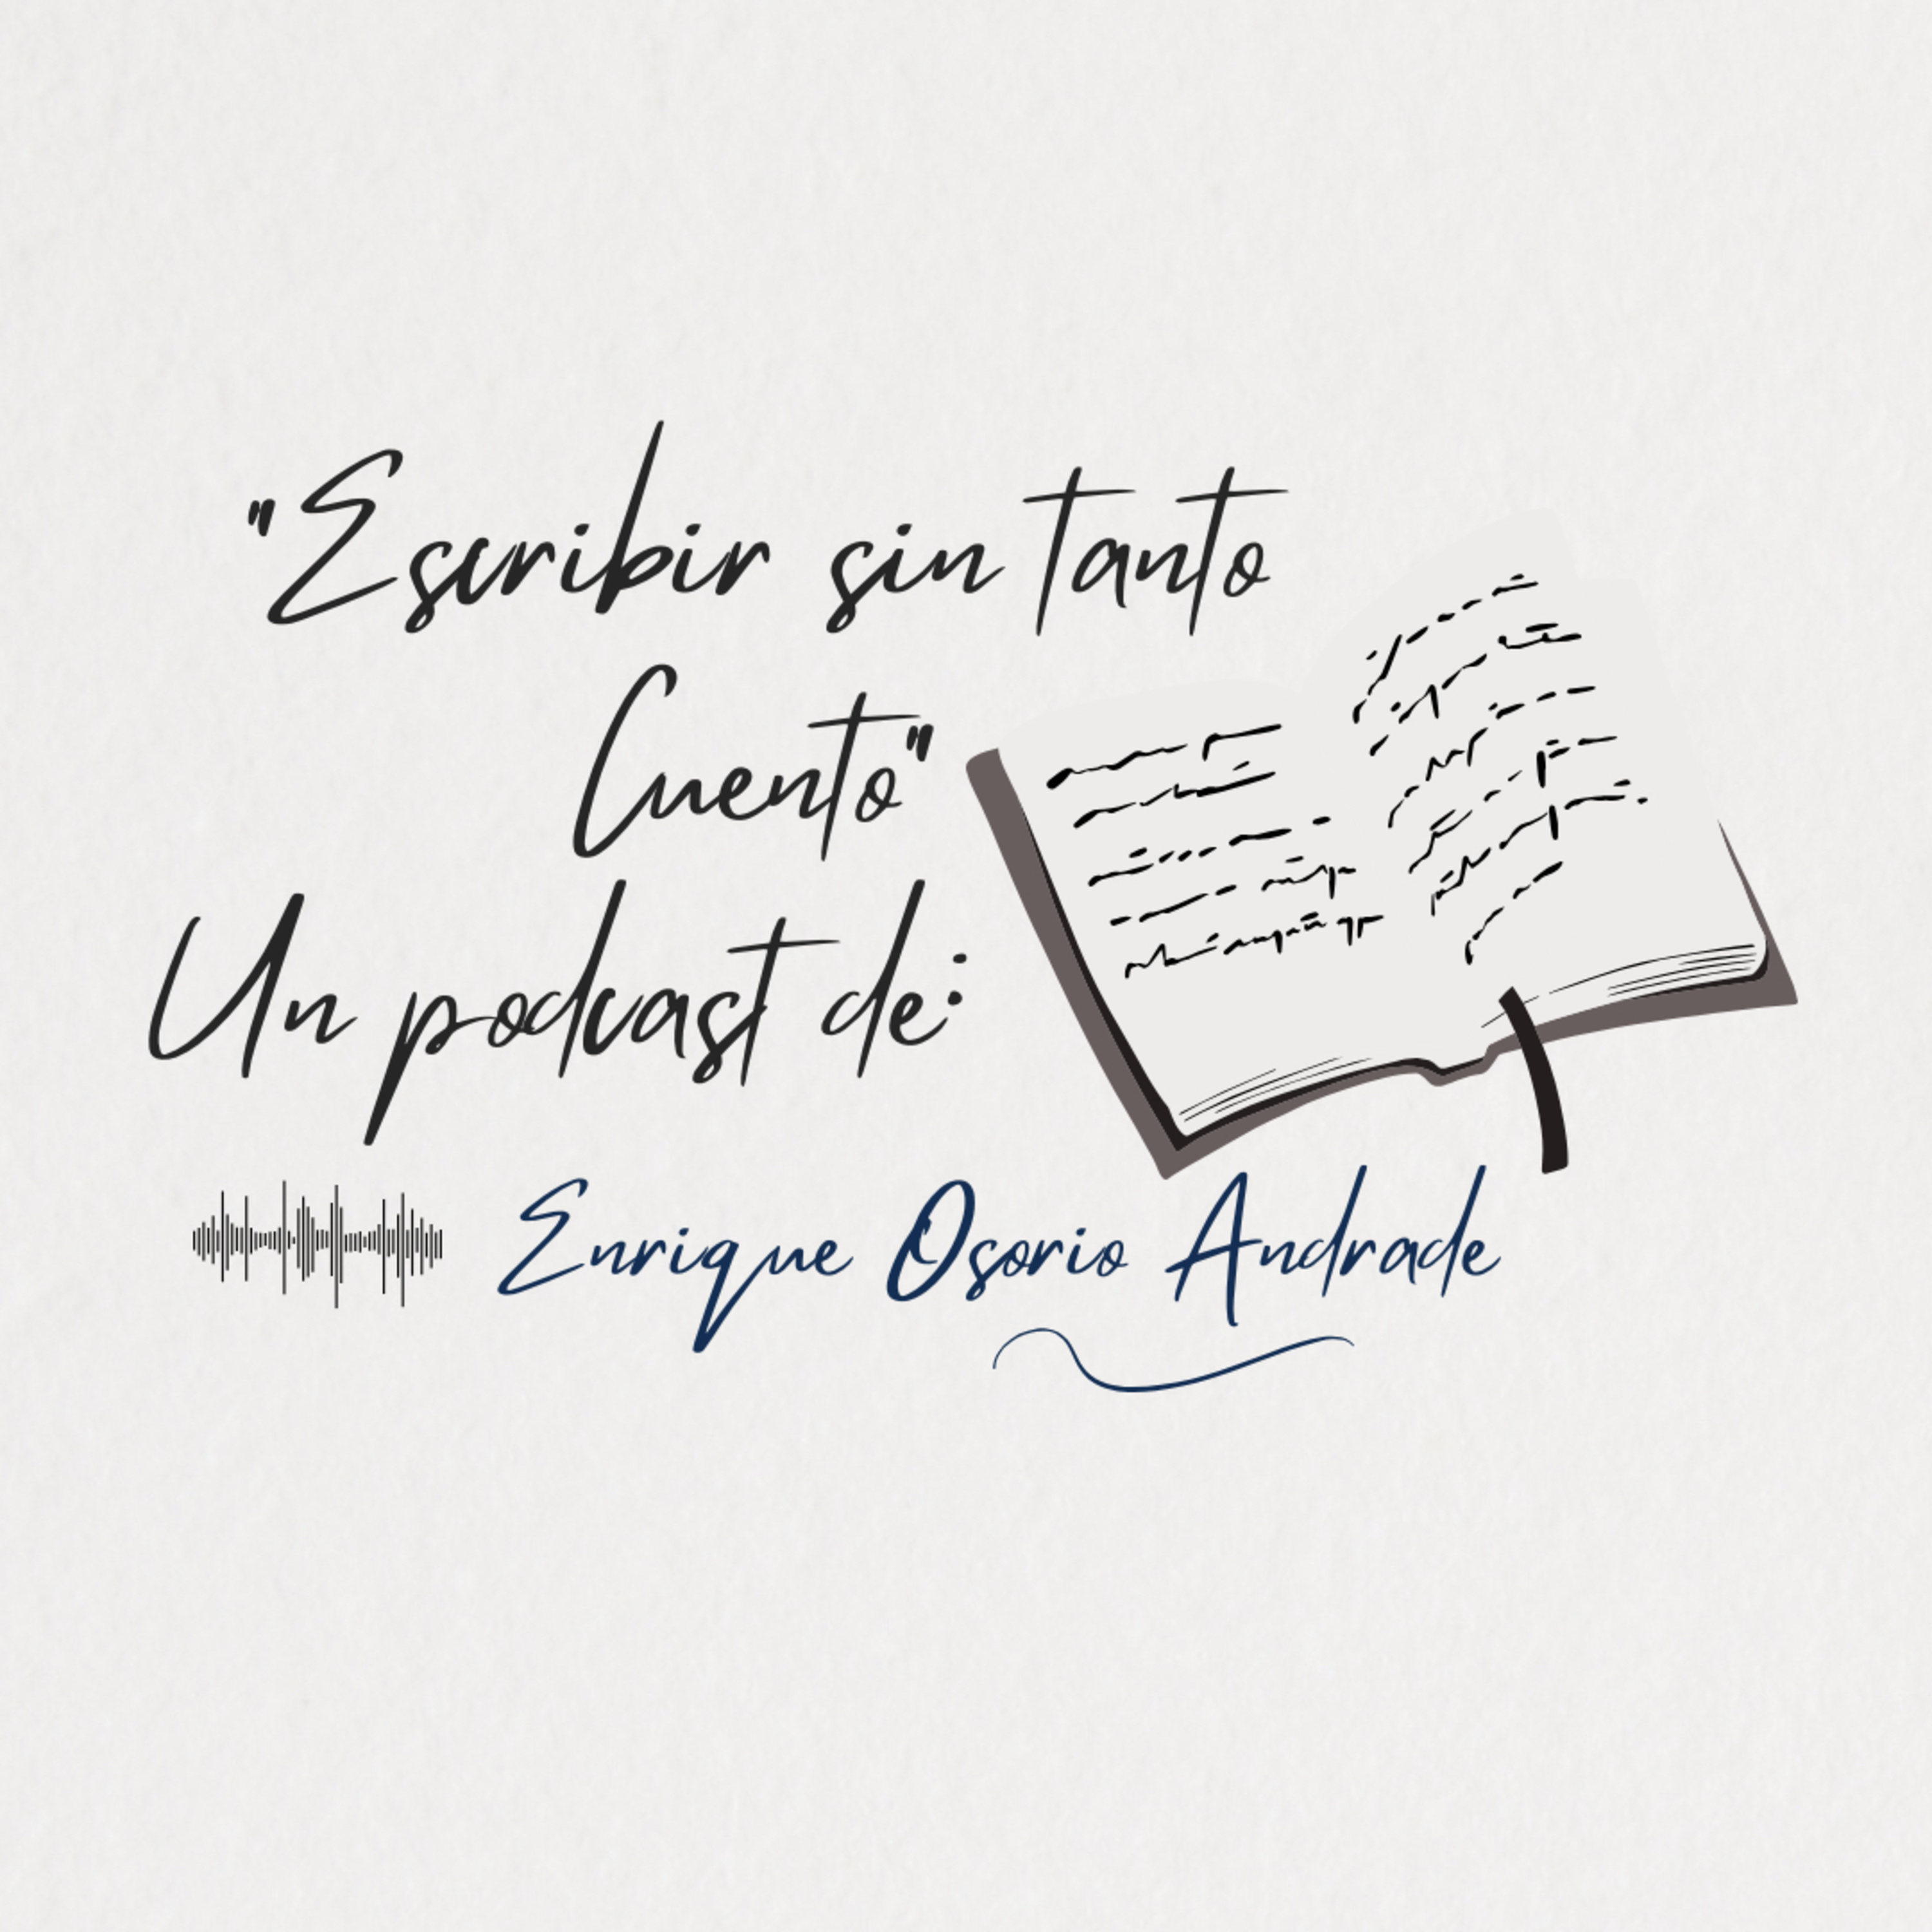 "Escribir sin tanto
Cuento"
Un podcast de:
Enrique Osorio Andrade